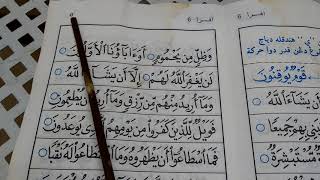 اقرأ - 6
6 - اقرأ
وَظِلٍّ مِنْ يَحْمُومٍ أَوَءَابَآؤُنَا الْأَوَّلُونَ
لَنْ يَغْفِرَ اللَّهُ لَهُمْ إِلَّا أَنْ يَشَآءَ اللَّهُ
وَمَآ أُرِيدُ مِنْهُمْ مِنْ رِزْقٍ وَمَآ أُرِيدُ أَنْ يُطْعِمُونِ
فَوَيْلٌ لِلَّذِينَ كَفَرُوا مِنْ يَوْمِهِمُ الَّذِي يُوعَدُونَ
فَمَا اسْطَاعُوٓا أَنْ يَظْهَرُوهُ وَمَا اسْتَطَاعُوا لَهُ نَقْبًا
قَوْمٌ يُوقِنُونَ
يَشَآءَ اللَّهُ
جَمِيعًا